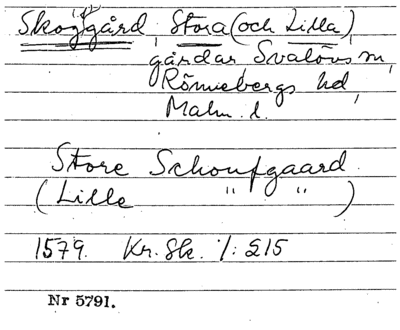 Skogsgård, Stora (och Lilla),
gårdar Svalövs sn,
Rönnebergs hd,
Malm. l.
Store Schoufgaard
(Lille " ")
1579. Kr. Sk. 1: 215
Nr 5791.